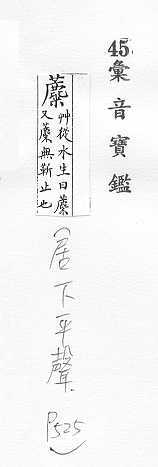 45.彙音寶鑑
蘪
艸從水生曰蘪
又蘪無靳止也
(居下平聲. P525)